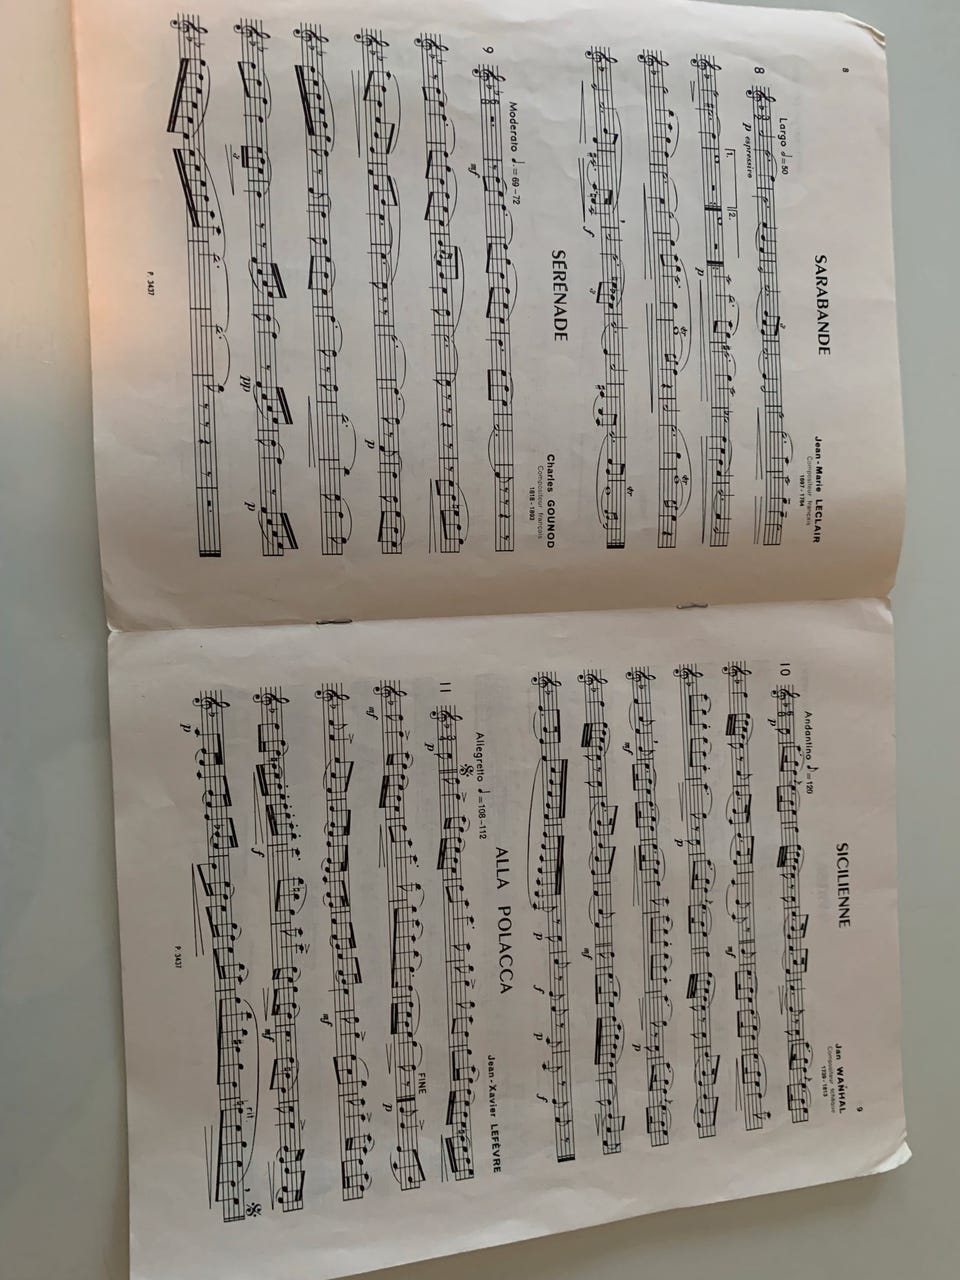 8
SARABANDE
Jean-Marie LECLAIR
Compositeur français
1697-1764
8
Largo ♩=50
p espressivo
3
1.
2.
p
tr
tr
f
3
tr
SÉRÉNADE
Charles GOUNOD
Compositeur français
1818-1893
9
Moderato ♩.=69-72
mf
p
3
pp
p
P. 3437
9
SICILIENNE
Jan WAŃHAL
Compositeur tchèque
1739-1813
10
Andantino ♪=120
p
mf
p
mf
p
mf
p
f
p
f
ALLA POLACCA
Jean-Xavier LEFÈVRE
11
Allegretto ♩=108-112
p
mf
FINE
p
mf
f
mf
p
rit.
P. 3437